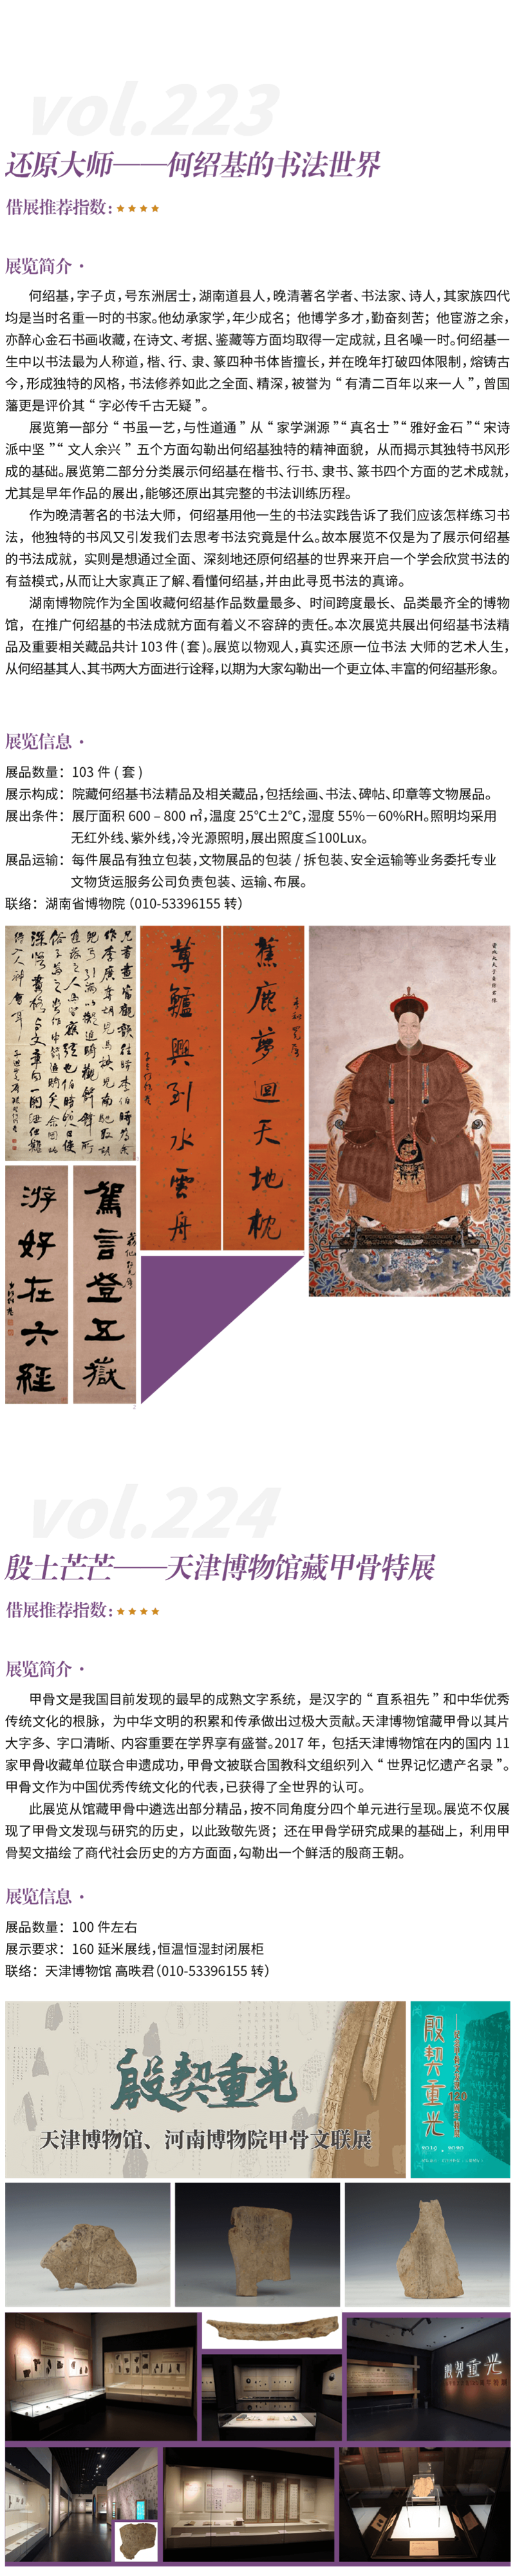 vol.223
还原大师——何绍基的书法世界
借展推荐指数：★★★★
展览简介 ·
何绍基，字子贞，号东洲居士，湖南道县人，晚清著名学者、书法家、诗人，其家族四代
均是当时名重一时的书家。他幼承家学，年少成名；他博学多才，勤奋刻苦；他宦游之余，
亦醉心金石书画收藏，在诗文、考据、鉴藏等方面均取得一定成就，且名噪一时。何绍基一
生中以书法最为人称道，楷、行、隶、篆四种书体皆擅长，并在晚年打破四体限制，熔铸古
今，形成独特的风格，书法修养如此之全面、精深，被誉为“有清二百年以来一人”，曾国
藩更是评价其“字必传千古无疑”。
展览第一部分“书虽一艺，与性道通”从“家学渊源”“真名士”“雅好金石”“宋诗
派中坚”“文人余兴”五个方面勾勒出何绍基独特的精神面貌，从而揭示其独特书风形
成的基础。展览第二部分分类展示何绍基在楷书、行书、隶书、篆书四个方面的艺术成就，
尤其是早年作品的展出，能够还原出其完整的书法训练历程。
作为晚清著名的书法大师，何绍基用他一生的书法实践告诉了我们应该怎样练习书
法，他独特的书风又引发我们去思考书法究竟是什么。故本展览不仅是为了展示何绍基
的书法成就，实则是想通过全面、深刻地还原何绍基的世界来开启一个学会欣赏书法的
有益模式，从而让大家真正了解、看懂何绍基，并由此寻觅书法的真谛。
湖南博物院作为全国收藏何绍基作品数量最多、时间跨度最长、品类最齐全的博物
馆，在推广何绍基的书法成就方面有着义不容辞的责任。本次展览共展出何绍基书法精
品及重要相关藏品共计 103 件（套）。展览以物观人，真实还原一位书法 大师的艺术人生，
从何绍基其人、其书两大方面进行诠释，以期为大家勾勒出一个更立体、丰富的何绍基形象。
展览信息 ·
展品数量：103 件（套）
展示构成：院藏何绍基书法精品及相关藏品，包括绘画、书法、碑帖、印章等文物展品。
展出条件：展厅面积 600 – 800 ㎡，温度 25℃±2℃，湿度 55%－60%RH。照明均采用
无红外线、紫外线，冷光源照明，展出照度≦100Lux。
展品运输：每件展品有独立包装，文物展品的包装 / 拆包装、安全运输等业务委托专业
文物货运服务公司负责包装、运输、布展。
联络：湖南省博物院（010-53396155 转）
蕉鹿梦回天地枕
蓴鱸興到水雲舟
駕言登五嶽
游好在六經
vol.224
殷土芒芒——天津博物馆藏甲骨特展
借展推荐指数：★★★★
展览简介 ·
甲骨文是我国目前发现的最早的成熟文字系统，是汉字的“直系祖先”和中华优秀
传统文化的根脉，为中华文明的积累和传承做出过极大贡献。天津博物馆藏甲骨以其片
大字多、字口清晰、内容重要在学界享有盛誉。2017 年，包括天津博物馆在内的国内 11
家甲骨收藏单位联合申遗成功，甲骨文被联合国教科文组织列入“世界记忆遗产名录”。
甲骨文作为中国优秀传统文化的代表，已获得了全世界的认可。
此展览从馆藏甲骨中遴选出部分精品，按不同角度分四个单元进行呈现。展览不仅展
现了甲骨文发现与研究的历史，以此致敬先贤；还在甲骨学研究成果的基础上，利用甲
骨契文描绘了商代社会历史的方方面面，勾勒出一个鲜活的殷商王朝。
展览信息 ·
展品数量：100 件左右
展示要求：160 延米展线，恒温恒湿封闭展柜
联络：天津博物馆 高昳君（010-53396155 转）
殷契重光
天津博物馆、河南博物院甲骨文联展
殷契重光
殷契重光